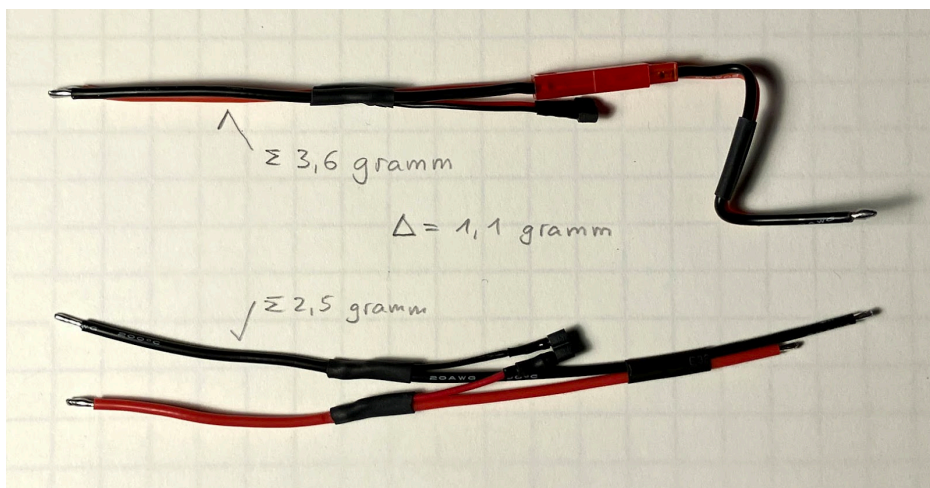 Σ 3,6 gramm
Δ = 1,1 gramm
Σ 2,5 gramm
200°C
20AWG